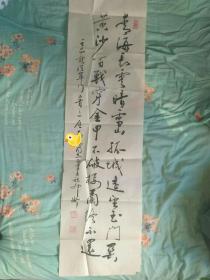 青海長雲暗雪山孤城遥望玉門関
黄沙百戰穿金甲不破楼蘭终不還
王昌龄從軍行